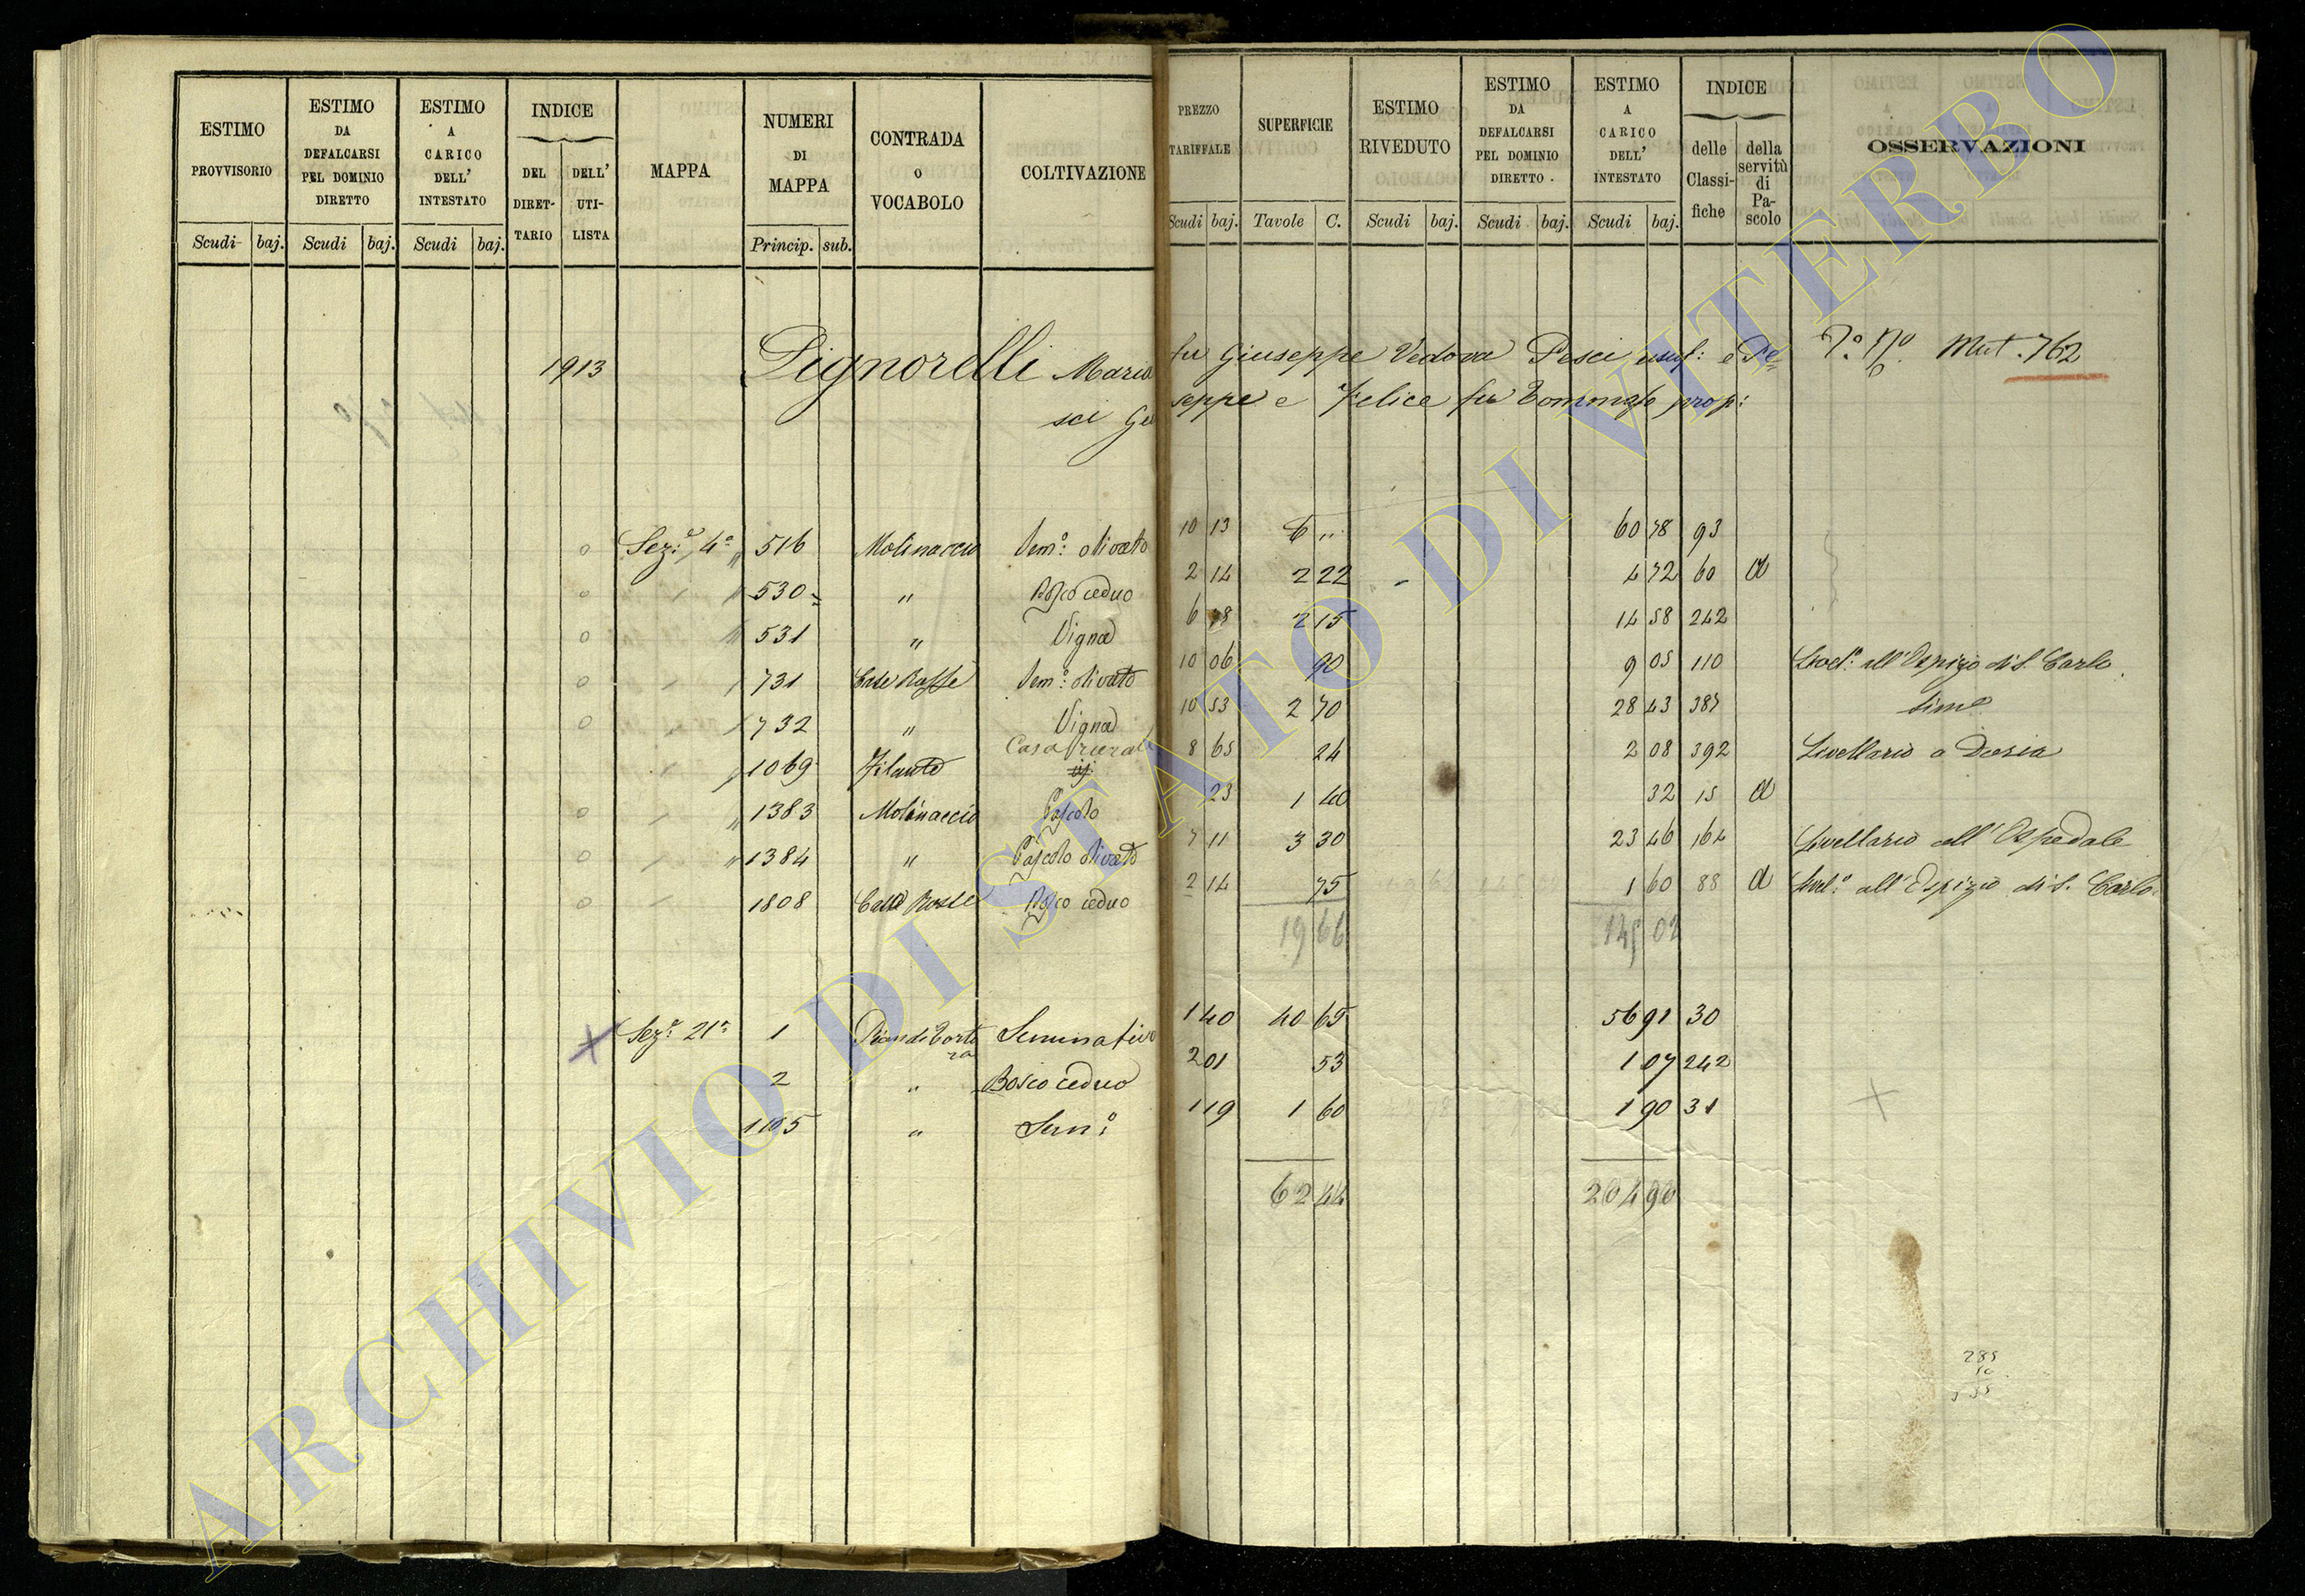 ESTIMO PROVVISORIO
ESTIMO DA DEFALCARSI PEL DOMINIO DIRETTO
ESTIMO A CARICO DELL' INTESTATO
INDICE
DEL DIRETTARIO
DELL' UTILISTA
MAPPA
NUMERI DI MAPPA
CONTRADA O VOCABOLO
COLTIVAZIONE
PREZZO TARIFFALE
SUPERFICIE
ESTIMO RIVEDUTO
ESTIMO DA DEFALCARSI PEL DOMINIO DIRETTO
ESTIMO A CARICO DELL' INTESTATO
INDICE
delle Classifiche
della servitù di Pascolo
OSSERVAZIONI
Scudi baj. Scudi baj. Scudi baj. Princip. sub. Scudi baj. Tavole C. Scudi baj. Scudi baj. Scudi baj.
1913 Pignorelli Maria fu Giuseppe Vedova Pesci usuf: e Pe= Mut. 762
sci Giuseppe e Felice fu Tommaso prop:
Sez.e 4a 516 Molinaccio Sem.o olivato 10 13 6 " 60 78 93
530 " Bosco ceduo 2 14 2 22 4 72 60 a
531 " Vigna 6 78 2 15 14 58 242
731 Case Rosse Sem.o olivato 10 06 90 9 05 110 Livel.o all'Ospizio di S. Carlo
732 " Vigna 10 53 2 70 28 43 387
1069 Filante Casa rurale 8 65 24 2 08 392 Livellario a Doria
1383 Molinaccio Pascolo 23 1 40 32 15 a
1384 " Pascolo olivato 7 11 3 30 23 46 164 Livellario all'Ospedale
1808 Case Rosse Bosco ceduo 2 14 75 1 60 88 a Livel.o all'Ospizio di S. Carlo
19 66 145 02
Sez.e 21a 1 Seminativo 1 40 40 65 56 91 30
2 " Bosco ceduo 2 01 53 1 07 242
1105 " Sem.o 1 19 1 60 1 90 31
62 44 204 90
ARCHIVIO DI STATO DI VITERBO